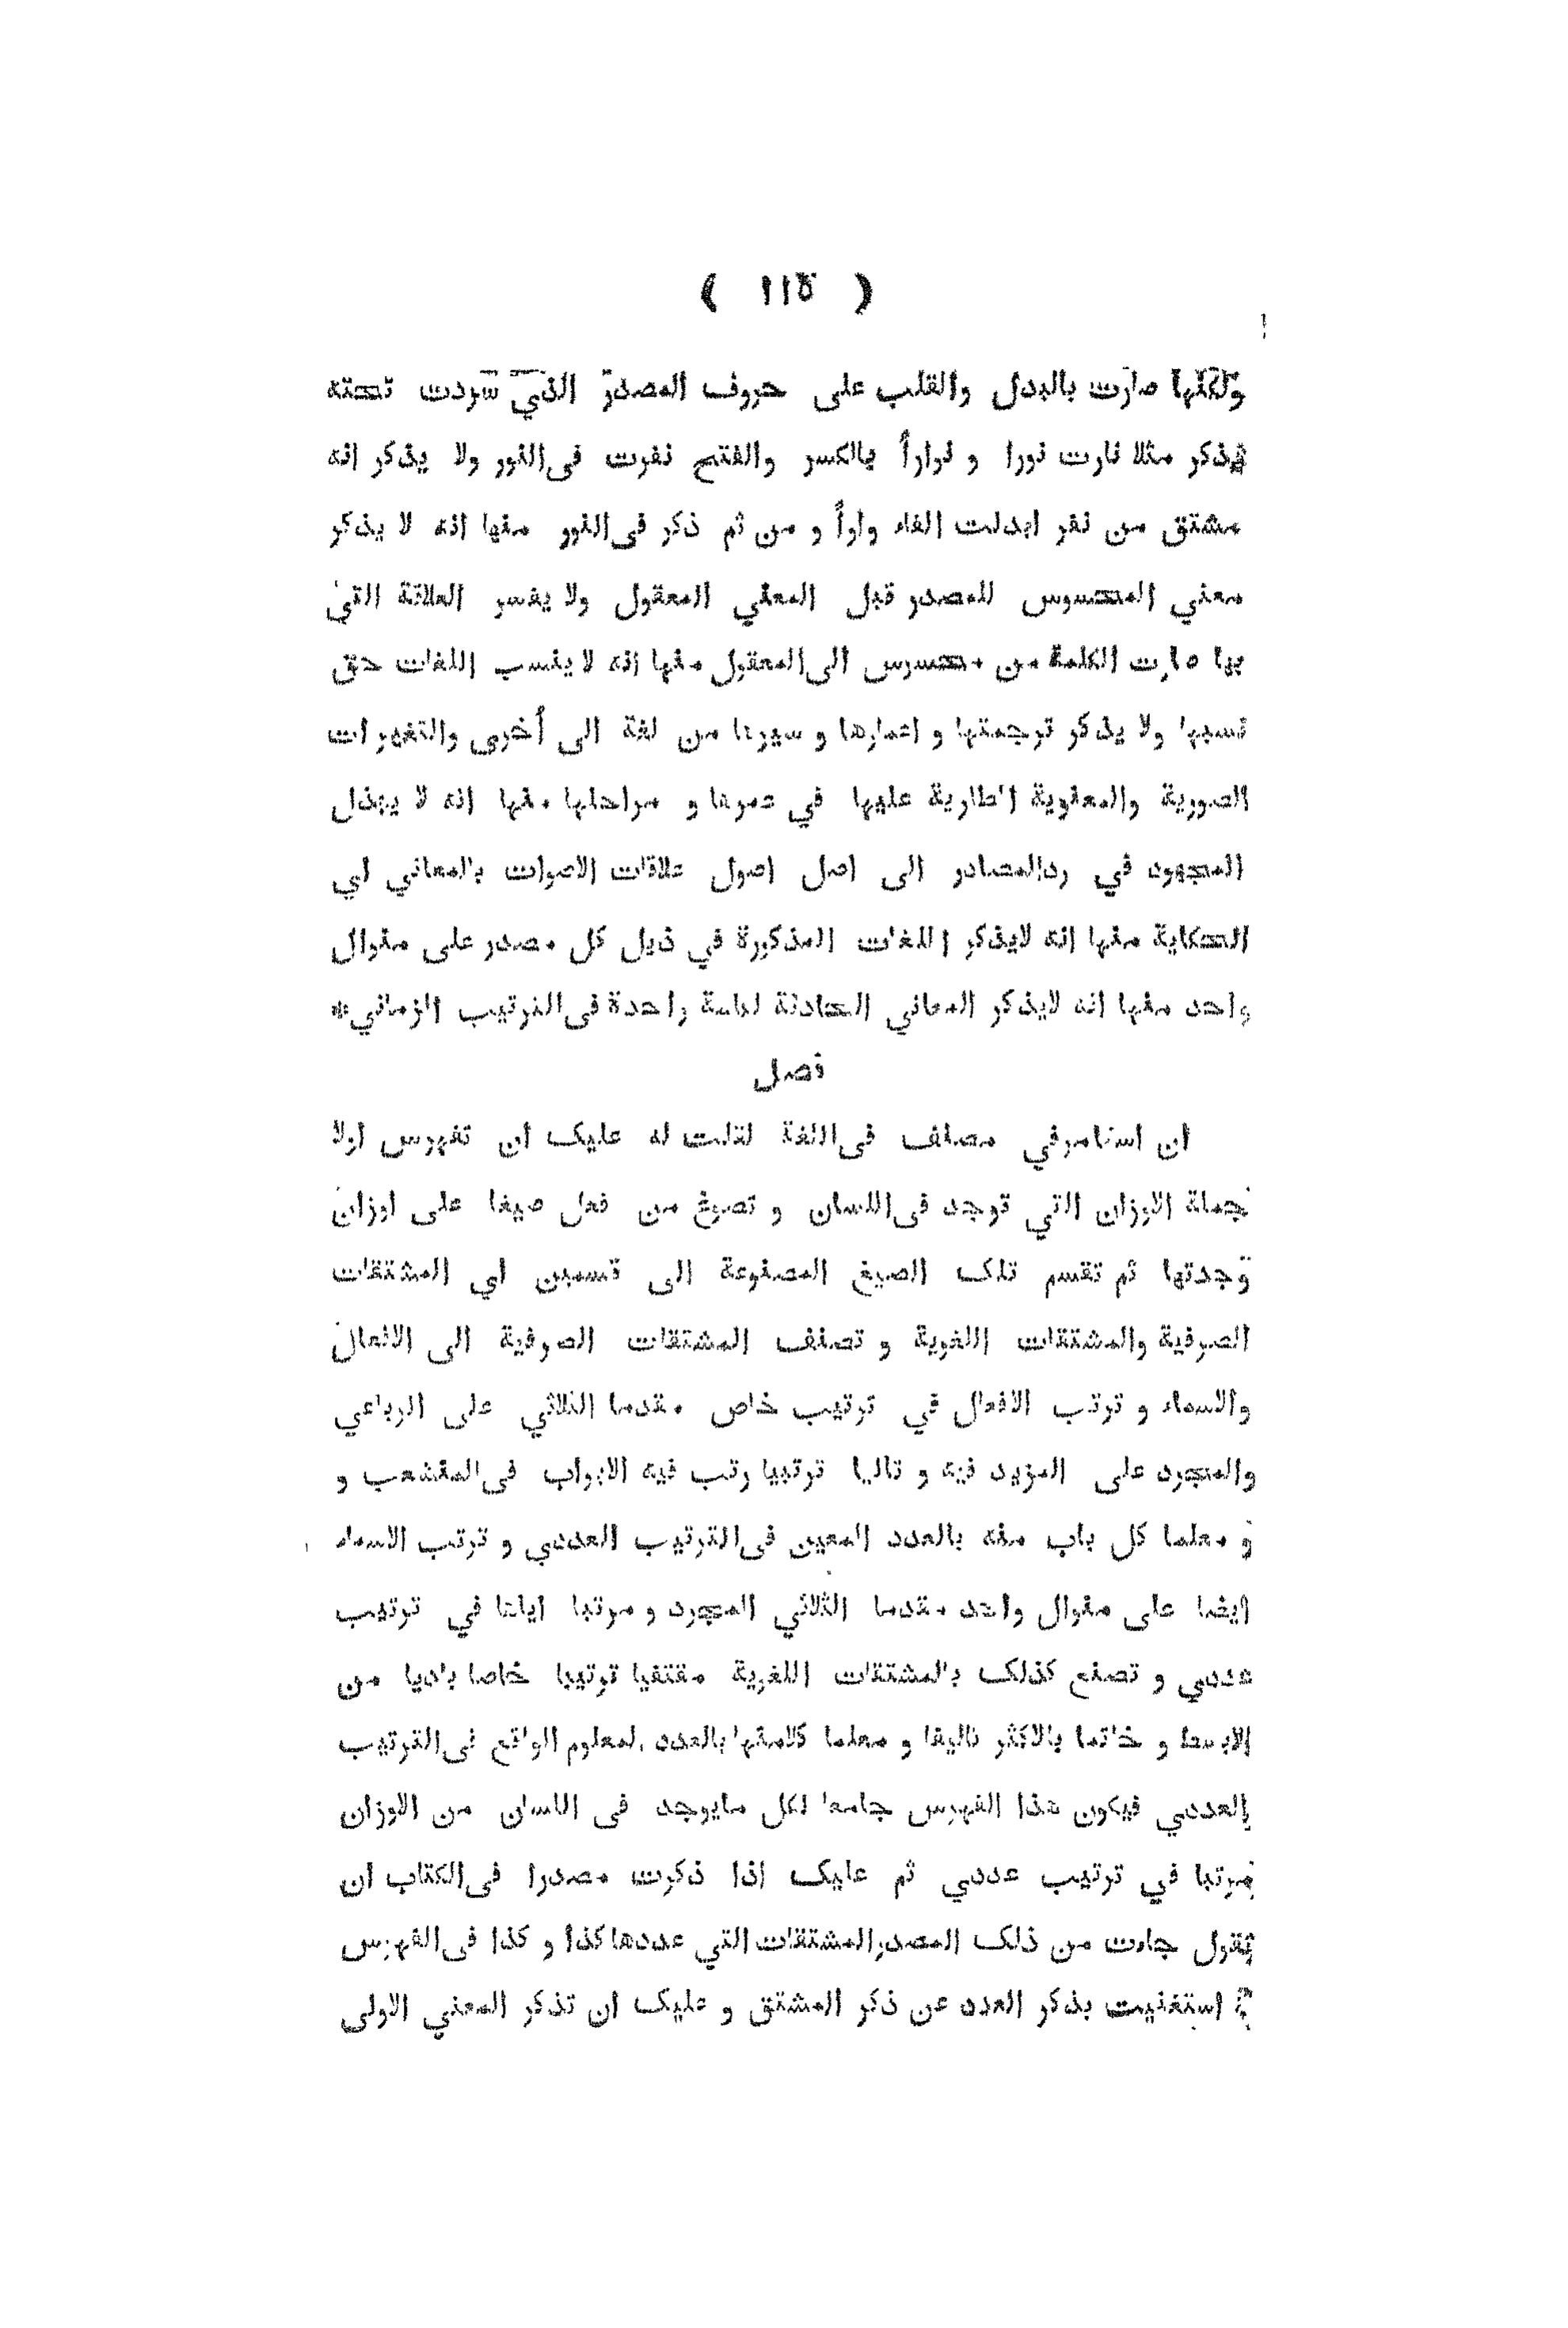 ( ١١٥ )
ولكنها صارت بالبدل والقلب على حروف المصدر الذي سردت تحته
فيذكر مثلا نارت نورا و نواراً بالكسر والفتح نفرت فى النور ولا يذكر انه
مشتق من نفر ابدلت الفاء واواً و من ثم ذكر فى النور منها انه لا يذكر
معني المحسوس للمصدر قبل المعني المعقول ولا يفسر العلاقة التي
بها صارت الكلمة من محسوس الى المعقول منها انه لا ينسب اللغات حق
نسبها ولا يذكر ترجمتها و اعمارها و سيرنا من لغة الى أخرى والتغيرات
الصورية والمعنوية الطارية عليها في عمرها و مراحلها منها انه لا يبذل
المجهود في رد المصادر الى اصل اصول علاقات الاصوات بالمعاني اي
الحكاية منها انه لايذكر اللغات المذكورة في ذيل كل مصدر على منوال
واحد منها انه لايذكر المعاني الحادثة لكلمة واحدة فى الترتيب الزماني*
فصل
ان استامرني مصنف فى اللغة لقلت له عليك ان تفهرس اولا
جملة الاوزان التي توجد فى اللسان و تصوغ من فعل صيغا على اوزان
وجدتها ثم تقسم تلك الصيغ المصنوعة الى قسمين اي المشتقات
الصرفية والمشتقات اللغوية و تصنف المشتقات الصرفية الى الافعال
والاسماء و ترتب الافعال في ترتيب خاص مقدما الثلاثي على الرباعي
والمجرد على المزيد فيه و تاليا ترتيبا رتب فيه الابواب فى المنشعب و
و معلما كل باب منه بالعدد المعين فى الترتيب العددي و ترتب الاسماء
ايضا على منوال واحد مقدما الثلاثي المجرد و مرتبا اياها في ترتيب
عددي و تصنع كذلك بالمشتقات اللغوية مقتفيا ترتيبا خاصا باديا من
الابسط و خاتما بالاكثر تاليفا و معلما كلامنها بالعدد المعلوم الواقع فى الترتيب
العددي فيكون هذا الفهرس جامعا لكل مايوجد فى اللسان من الاوزان
مرتبا في ترتيب عددي ثم عليك اذا ذكرت مصدرا فى الكتاب ان
تقول جاءت من ذلك المصدر المشتقات التي عددها كذا و كذا فى الفهرس
استغنيت بذكر العدد عن ذكر المشتق و عليك ان تذكر المعني الاولى